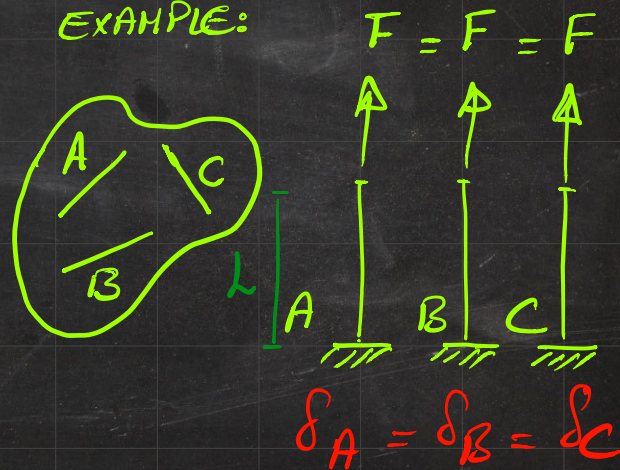 EXAMPLE:
F = F = F
A
C
B
L
A B C
δA = δB = δC